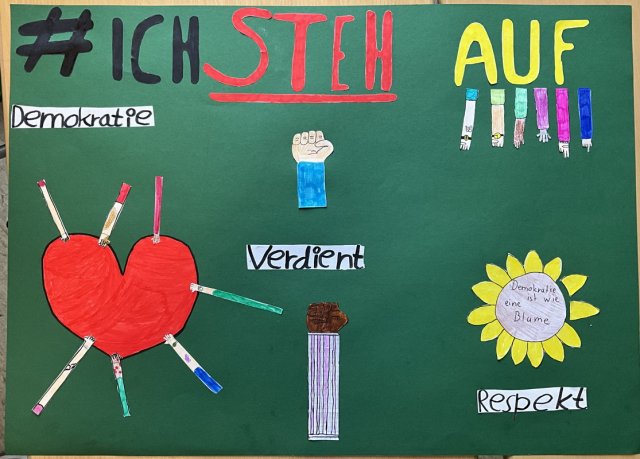 #ICH STEH AUF
Demokratie
Verdient
Demokratie
ist wie
eine
Blume
Respekt